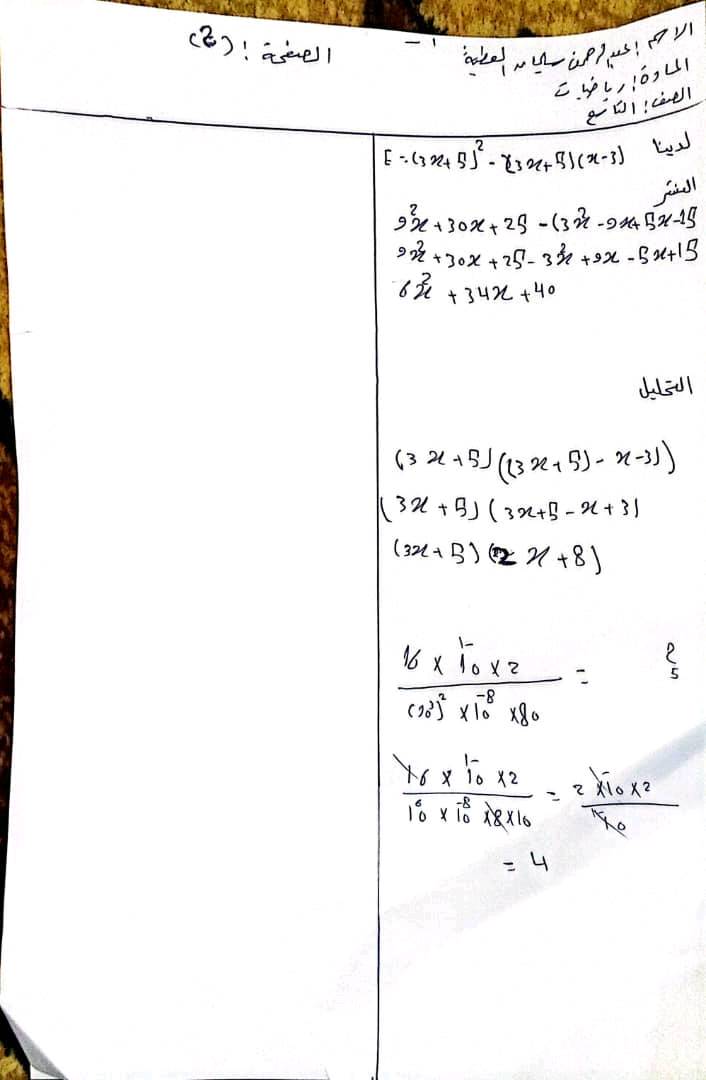 الاسم: عبد الرحمن العطية
المادة: رياضيات
الصف: التاسع
الصفحة: (2)
لدينا E = (3x+5)² - (3x+5)(x-3)
النشر
9x² + 30x + 25 - (3x² - 9x + 5x - 15
9x² + 30x + 25 - 3x² + 9x - 5x + 15
6x² + 34x + 40
التحليل
(3x + 5) ((3x + 5) - x - 3))
(3x + 5) (3x + 5 - x + 3)
(3x + 5) (2x + 8)
16 × 10⁻¹ × 2 / (10³)² × 10⁻⁸ × 80 =
16 × 10⁻¹ × 2 / 10⁶ × 10⁻⁸ × 8 × 10 = 2 × 10⁻¹ × 2 / 10⁻¹
= 4